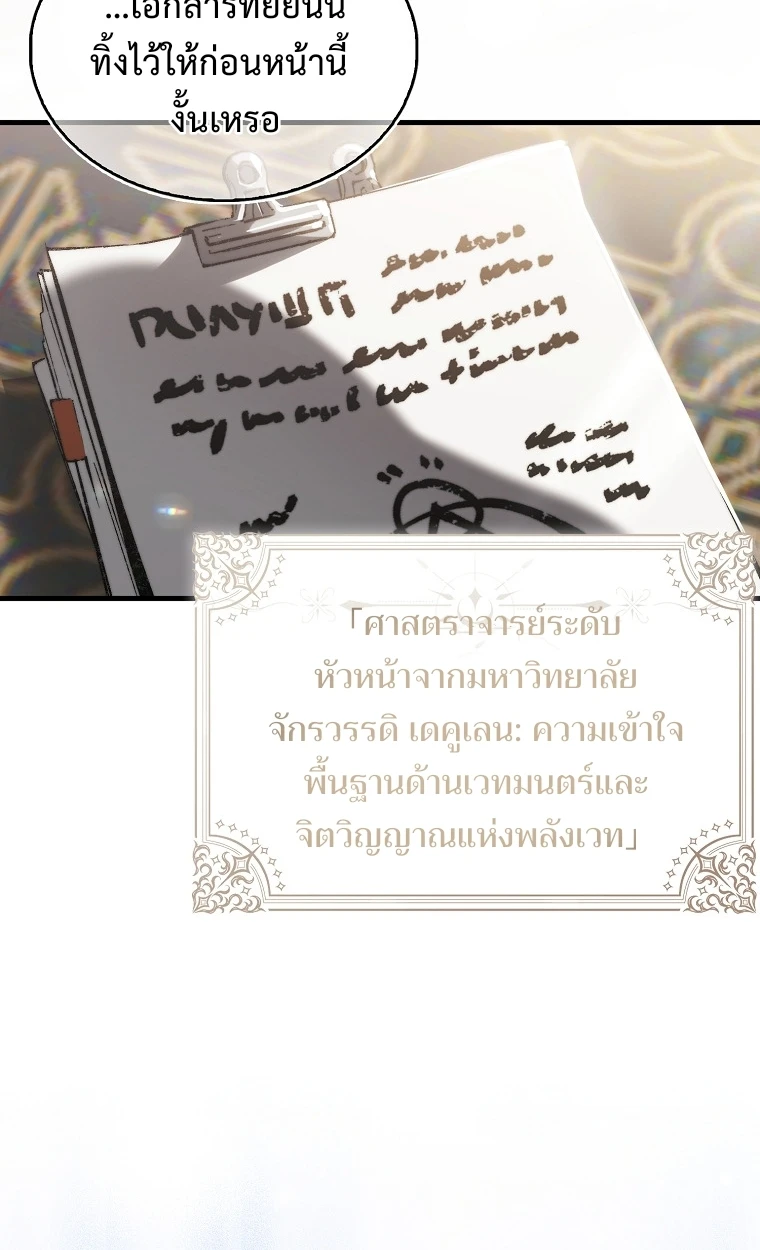 ...เอกสารที่ยัยนั่น
ทิ้งไว้ให้ก่อนหน้านี้
งั้นเหรอ
「ศาสตราจารย์ระดับ
หัวหน้าจากมหาวิทยาลัย
จักรวรรดิ เดคูเลน: ความเข้าใจ
พื้นฐานด้านเวทมนตร์และ
จิตวิญญาณแห่งพลังเวท」